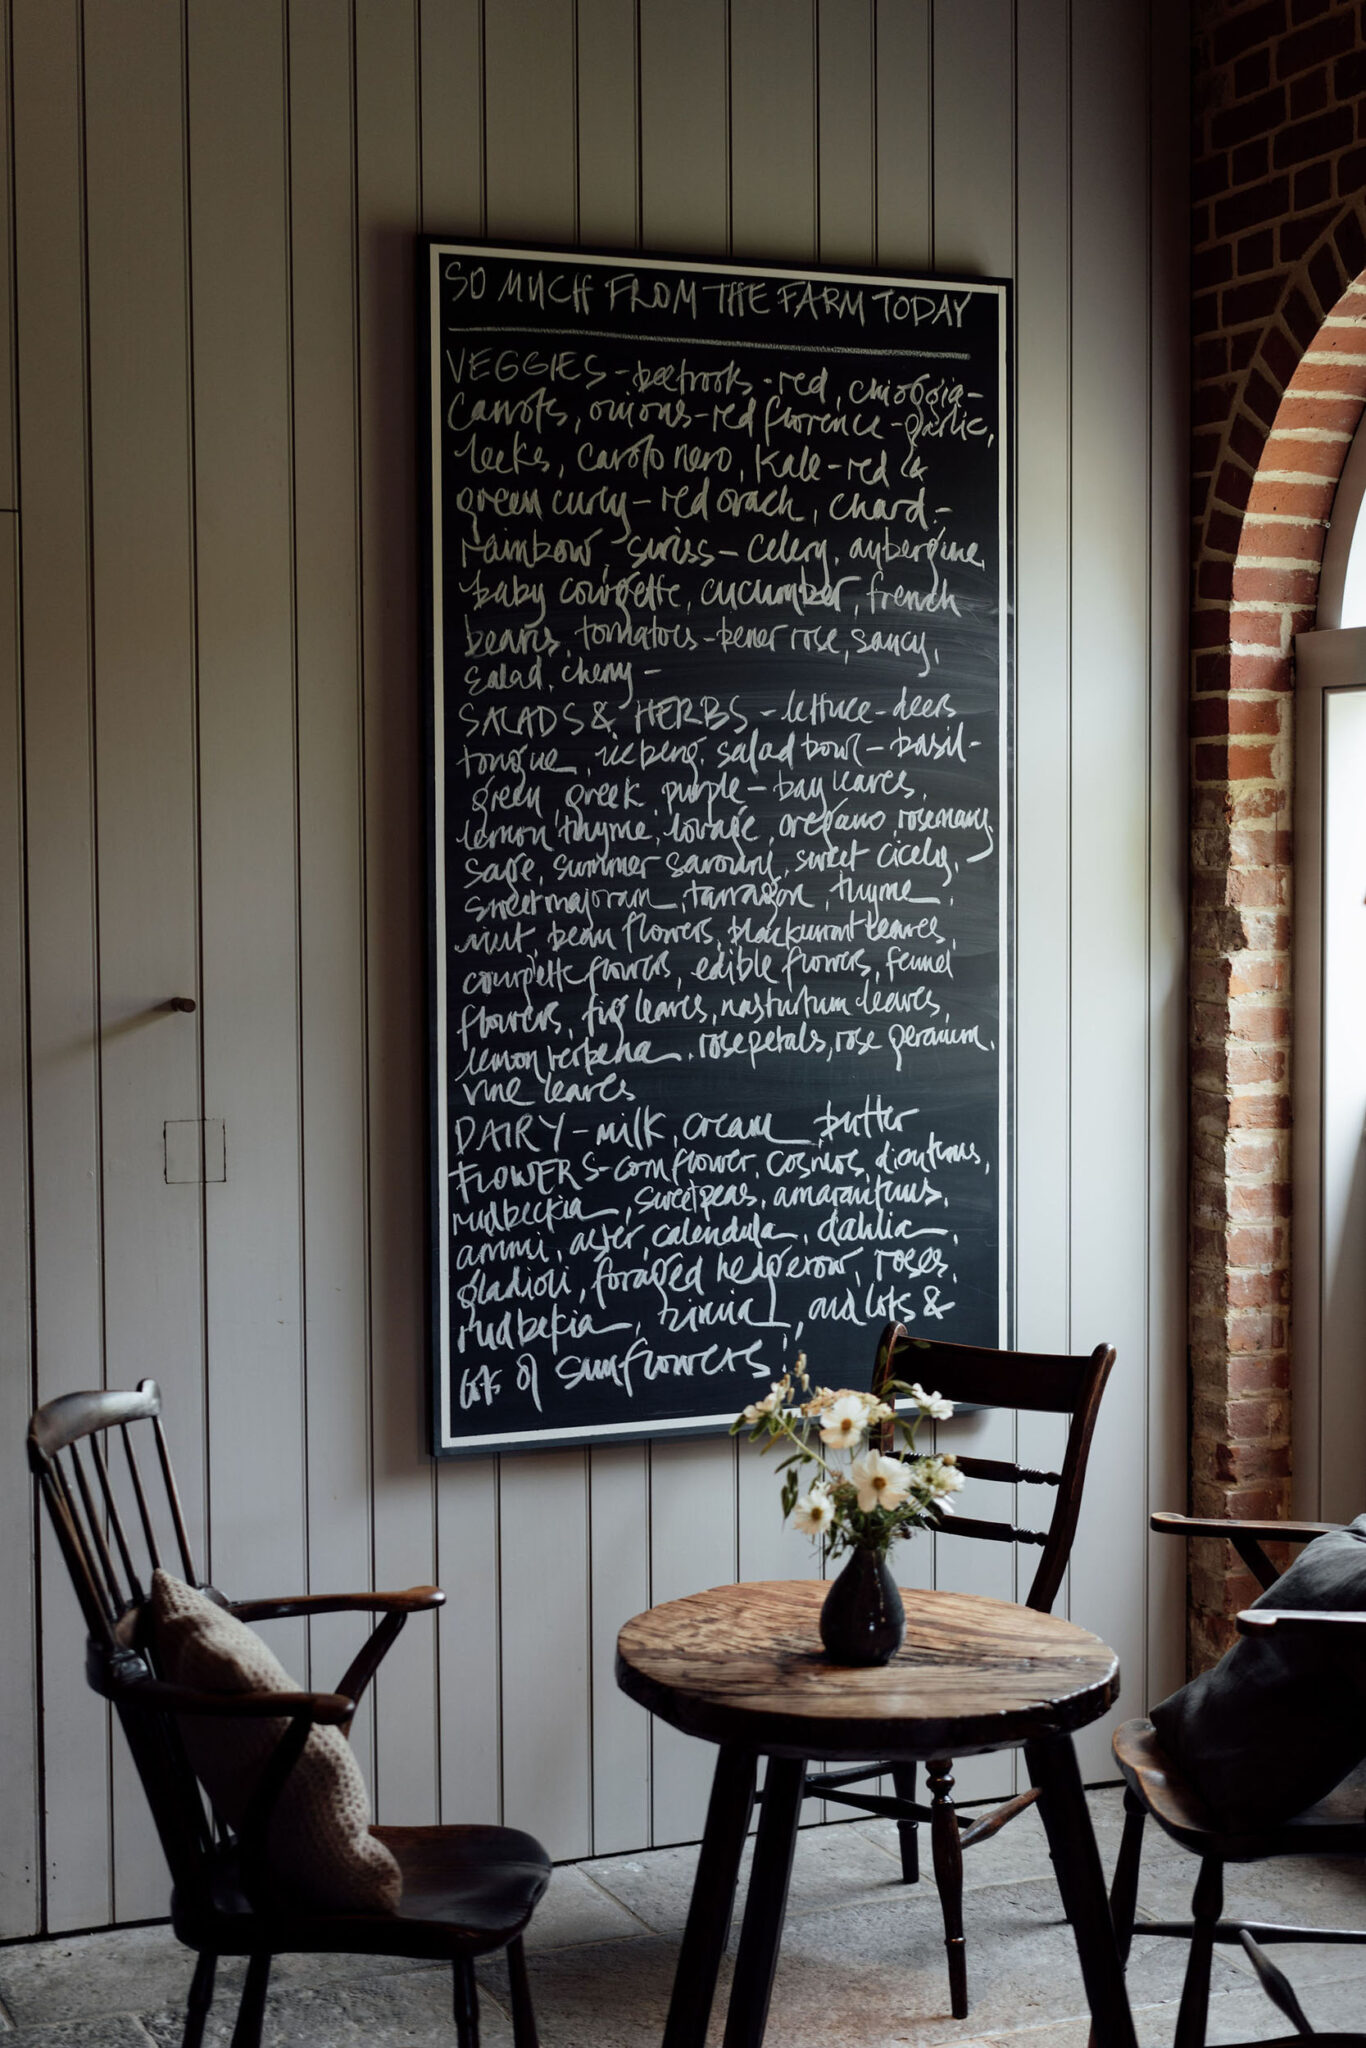 SO MUCH FROM THE FARM TODAY
VEGGIES - beetroots - red, chioggia -
Carrots, onions - red florence - garlic,
leeks, carolo nero, kale - red &
green curly - red orach, chard -
rainbow, swiss - celery, aubergine,
baby courgette, cucumber, french
beans, tomatoes - bener rose, saucy,
salad, cherry -
SALADS & HERBS - lettuce - deers
tongue, iceberg, salad bowl - basil -
green, greek, purple - bay leaves,
lemon thyme, lovage, oregano, rosemary,
sage, summer savoury, sweet cicely,
sweet majoram, tarragon, thyme,
mint, bean flowers, blackcurrant leaves,
courgette flowers, edible flowers, fennel
flowers, fig leaves, nasturtium leaves,
lemon verbena, rose petals, rose geranium,
vine leaves
DAIRY - milk, cream, butter
FLOWERS - cornflower, cosmos, dianthus,
rudbeckia, sweetpeas, amaranthus,
ammi, aster, calendula, dahlia,
gladioli, foraged hedgerow, roses,
rudbekia, zinnia, and lots &
lots of sunflowers!